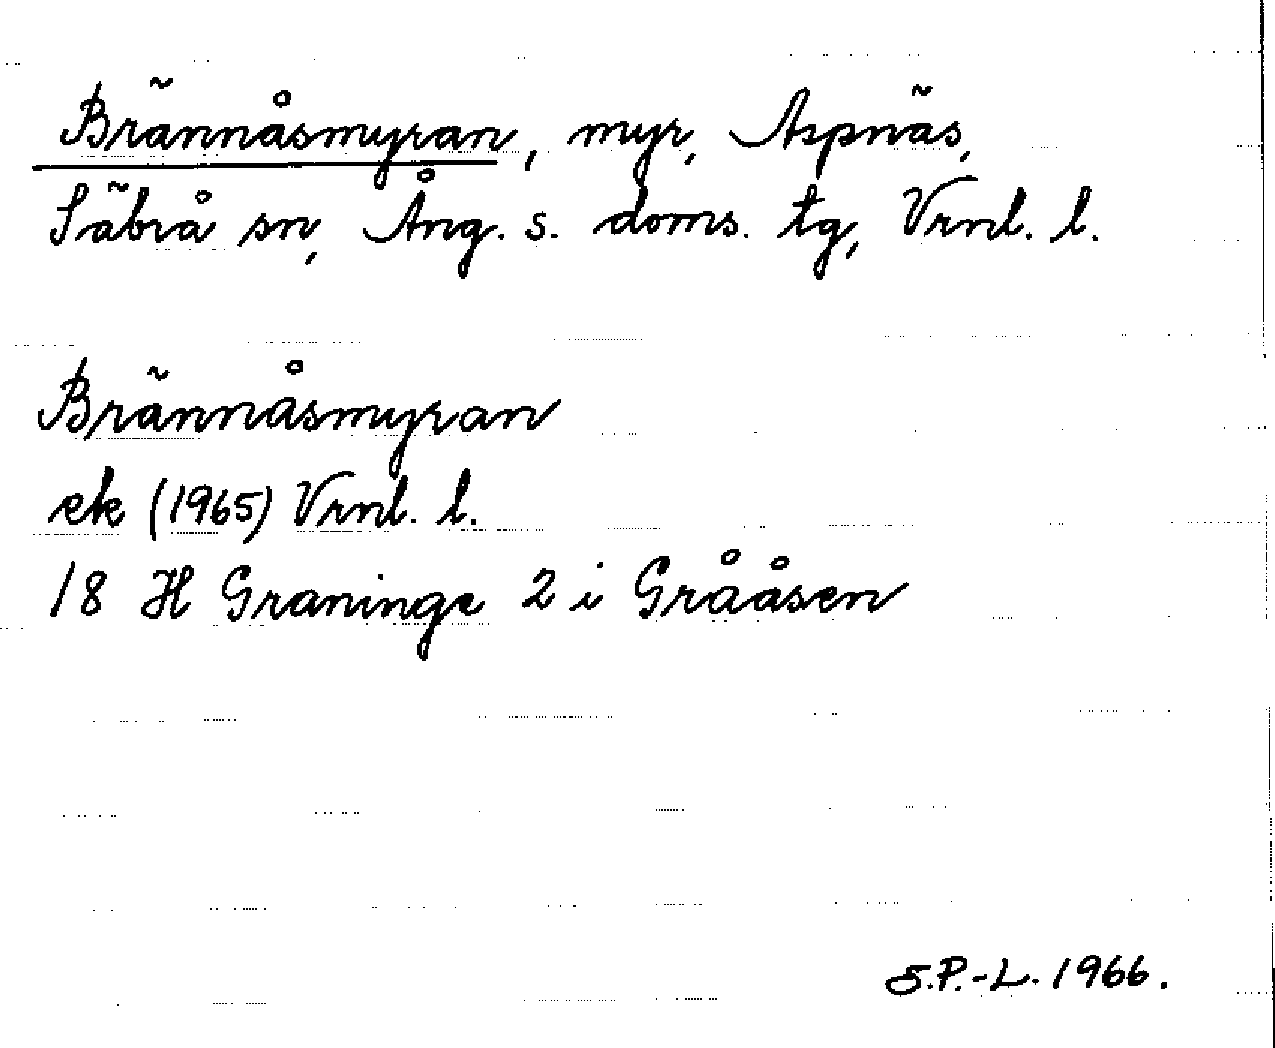 Brännåsmyran, myr, Aspnäs,
Säbrå sn, Ång. s. doms. tg, Vrnl. l.
Brännåsmyran
ek (1965) Vrnl. l.
18 H Graninge 2 i Grååsen
S.P.-L. 1966.